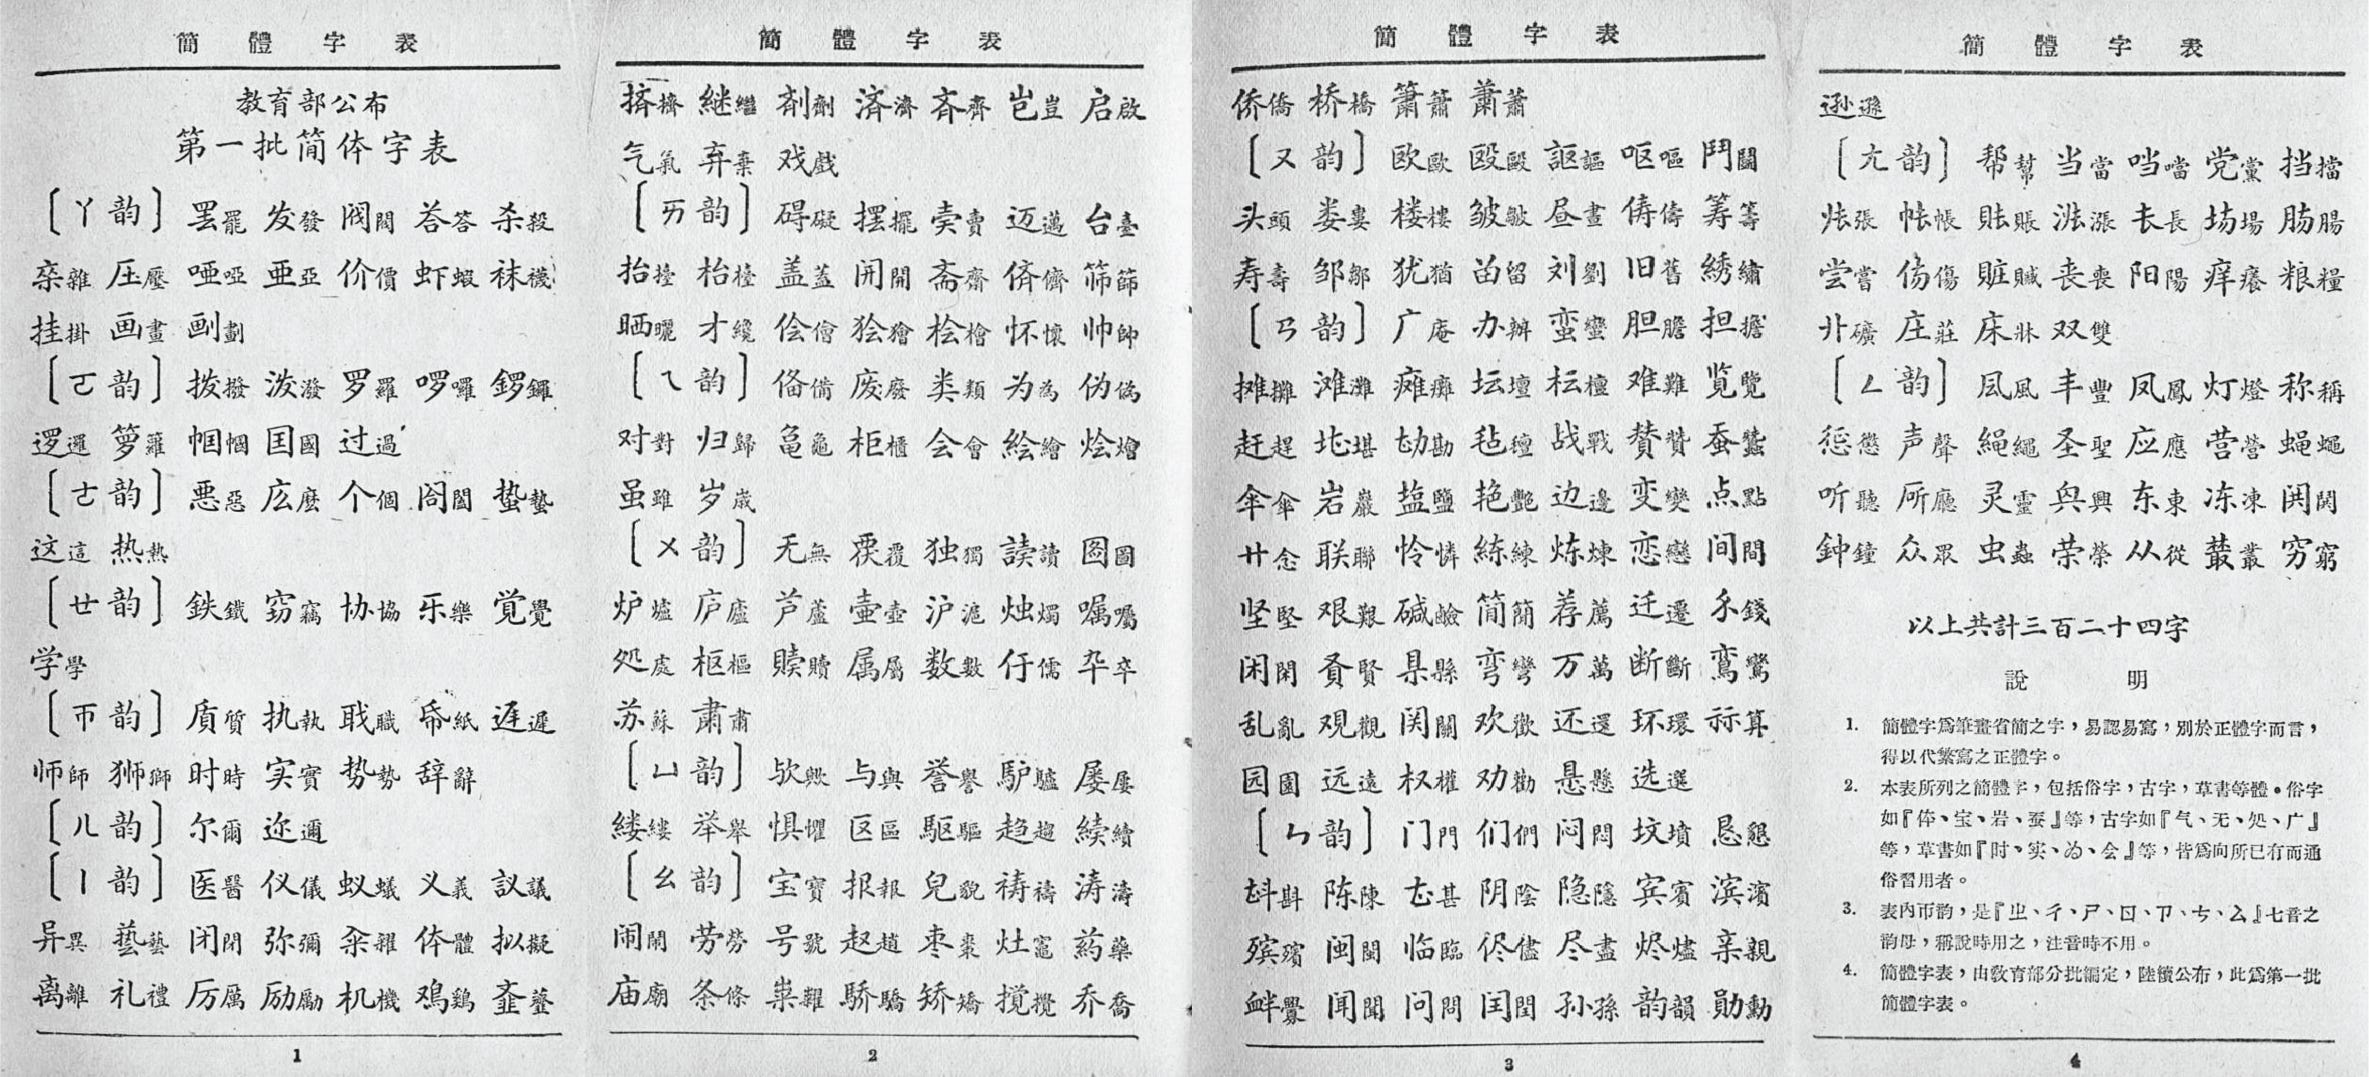 簡體字表
教育部公布
第一批简体字表
〔ㄚ韵〕罢罷 发發 阀閥 荅答 杀殺
杂雜 压壓 哑啞 亚亞 价價 虾蝦 袜襪
挂掛 画畫 劃
〔ㄛ韵〕拨撥 泼潑 罗羅 啰囉 鑼
逻邏 箩籮 帼幗 国國 过過
〔ㄜ韵〕悪惡 庅麼 个個 阁閣 蛰蟄
这這 热熱
〔ㄝ韵〕鉄鐵 窃竊 协協 乐樂 覚覺
学學
〔ㄭ韵〕质質 执執 职職 帋紙 迟遲
师師 狮獅 时時 实實 势勢 辞辭
〔ㄦ韵〕尔爾 迩邇
〔ㄧ韵〕医醫 仪儀 蚁蟻 义義 議
异異 藝 闭閉 弥彌 籴糴 体體 拟擬
离離 礼禮 厉厲 励勵 机機 鸡鷄 虀
1
簡體字表
挤擠 継繼 剤劑 済濟 斉齊 岂豈 启啟
气氣 弃棄 戏戲
〔ㄞ韵〕碍礙 摆擺 卖賣 迈邁 台臺
抬擡 枱檯 盖蓋 開 斋齋 侪儕 筛篩
晒曬 才纔 侩儈 狯獪 桧檜 怀懷 帅帥
〔ㄟ韵〕俻備 废廢 类類 为為 伪偽
对對 归歸 亀龜 柜櫃 会會 絵繪 烩燴
虽雖 岁歲
〔ㄨ韵〕无無 覆 独獨 読讀 图圖
炉爐 庐廬 芦蘆 壶壺 沪滬 烛燭 嘱囑
処處 枢樞 赎贖 属屬 数數 儒 卆卒
苏蘇 肃肅
〔ㄩ韵〕欤歟 与與 誉譽 驴驢 屡屢
缕縷 举舉 惧懼 区區 駆驅 趋趨 続續
〔ㄠ韵〕宝寶 报報 皃貌 祷禱 涛濤
闹鬧 劳勞 号號 赵趙 枣棗 灶竈 药藥
庙廟 条條 粜糶 骄驕 矫矯 搅攪 乔喬
2
簡體字表
侨僑 桥橋 箫簫 萧蕭
〔ㄡ韵〕欧歐 殴毆 謳 呕嘔 鬥鬭
头頭 娄婁 楼樓 皱皺 昼晝 俦儔 筹籌
寿壽 邹鄒 犹猶 畄留 刘劉 旧舊 綉繡
〔ㄢ韵〕广庵 办辦 蛮蠻 胆膽 担擔
摊攤 滩灘 瘫癱 坛壇 枟檀 难難 览覽
赶趕 堪 勘 毡氈 战戰 賛贊 蚕蠶
伞傘 岩巖 塩鹽 艳艷 边邊 变變 点點
廿念 联聯 怜憐 練 炼煉 恋戀 间間
坚堅 艰艱 碱鹼 简簡 荐薦 迁遷 錢
闲閑 贤賢 県縣 弯彎 万萬 断斷 鸾鸞
乱亂 观觀 関關 欢歡 还還 环環 祘算
园園 远遠 权權 劝勸 悬懸 选選
〔ㄣ韵〕门門 们們 闷悶 坟墳 恳懇
斟 陈陳 甚 阴陰 隐隱 宾賓 滨濱
殡殯 闽閩 临臨 侭儘 尽盡 烬燼 亲親
衅釁 闻聞 问問 闰閏 孙孫 韵韻 勋勳
3
簡體字表
逊遜
〔ㄤ韵〕帮幫 当當 噹 党黨 挡擋
张張 帐帳 账賬 涨漲 长長 场場 肠腸
尝嘗 伤傷 赃贓 丧喪 阳陽 痒癢 粮糧
卝礦 庄莊 床牀 双雙
〔ㄥ韵〕凨風 丰豐 凤鳳 灯燈 称稱
惩懲 声聲 縄繩 圣聖 应應 营營 蝇蠅
听聽 廳 灵靈 兴興 东東 冻凍 閧
鈡鐘 众眾 虫蟲 荣榮 从從 叢 穷窮
以上共計三百二十四字
說明
1. 簡體字爲筆畫省簡之字，易認易寫，別於正體字而言，
得以代繁寫之正體字。
2. 本表所列之簡體字，包括俗字，古字，草書等體。俗字
如『体、宝、岩、蚕』等，古字如『气、无、処、广』
等，草書如『时、实、为、会』等，皆爲向所已有而通
俗習用者。
3. 表內ㄭ韵，是『ㄓ、ㄔ、ㄕ、ㄖ、ㄗ、ㄘ、ㄙ』七音之
韵母，稱說時用之，注音時不用。
4. 簡體字表，由敎育部分批編定，陸續公布，此爲第一批
簡體字表。
4